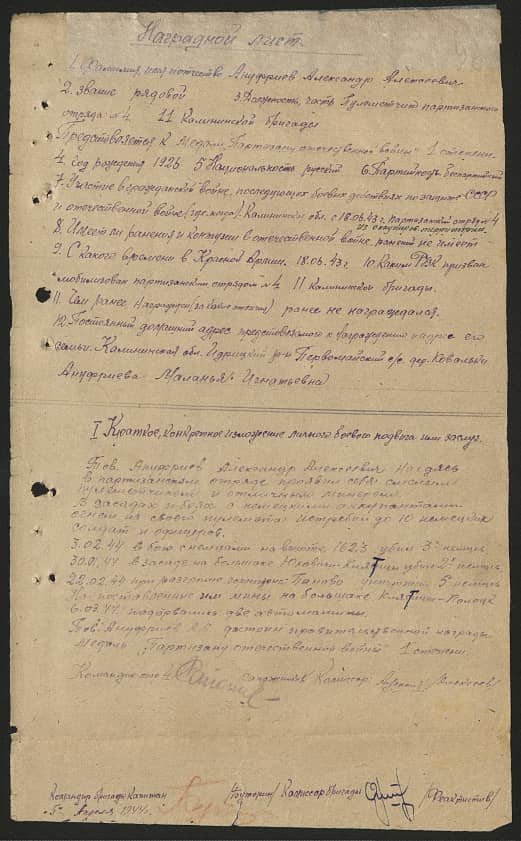 Наградной лист.
1. Фамилия, имя, отчество Ануфриев Александр Алексеевич
2. Звание рядовой 3. Должность, часть Пулеметчик партизанского
отряда №4 11 Калининской бригады
Представляется к Медаль „Партизану отечественной войны" 1 степени.
4 Год рождения 1926 5 Национальность русский 6. Партийность беспартийный
7. Участие в гражданской войне, последующих боевых действиях по защите СССР
и отечественной войне (где, когда) Калининская обл. с 18.06.43 г. партизанский отряд №4
8. Имеет ли ранения и контузии в отечественной войне ранений не имеет
9. С какого времени в Красной Армии. 18.06.43 г. 10. Каким РВК призван
мобилизован партизанским отрядом №4 11 Калининской бригады.
11. Чем ранее награжден (за какие отличия) ранее не награждался.
12. Постоянный домашний адрес представляемого к награждению и адрес его
семьи. Калининская обл. Идрицкий р-н Первомайский с/с дер. Ковальки
Ануфриева Маланья Игнатьевна
I Краткое, конкретное изложение личного боевого подвига или заслуг.
Тов. Ануфриев Александр Алексеевич находясь
в партизанском отряде проявил себя смелым
пулеметчиком и отличным минером.
В засадах и боях с немецкими оккупантами
огнем из своего пулемета истребил до 10 немецких
солдат и офицеров.
3.02.44 в бою с немцами на высоте 162,3 убил 3 немца,
в засаде на большаке Юховичи-Клятицы убил немцев
22.02.44 при разгроме гарнизона Паново уничтожил 5 немцев
На поставленные им мины на большаке Клятицы-Полоцк
6.03.44 подорвались две автомашины.
Тов. Ануфриев А.А. достоин правительственной награды
Медаль „Партизану отечественной войны" 1 степени.
Командир отр. 4 Комиссар: /Алексеев/
Командир бригады Капитан Комиссар бригады /Феоктистов/
апреля 1944 г.